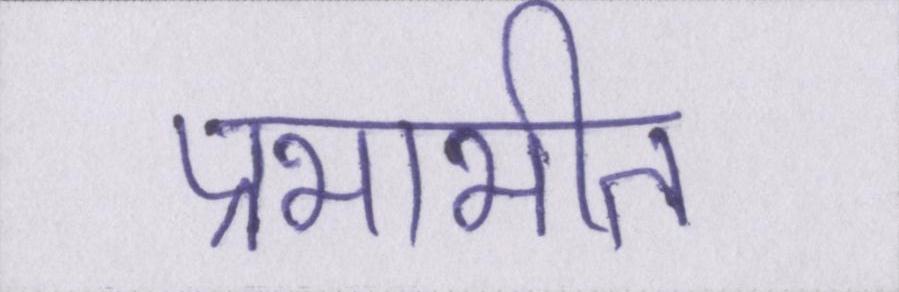 प्रभाभीत